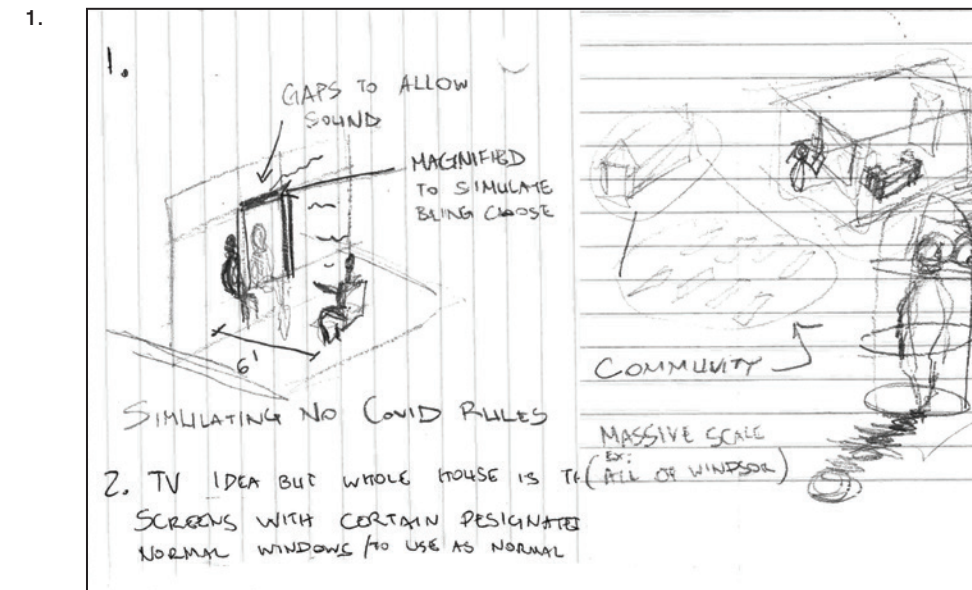 1.
1.
GAPS TO ALLOW
SOUND
MAGNIFIED
TO SIMULATE
BEING CLOOSE
6'
SIMULATING NO COVID RULES
2. TV IDEA BUT WHOLE HOUSE IS
SCREENS WITH CERTAIN DESIGNATED
NORMAL WINDOWS TO USE AS NORMAL
COMMUNITY
MASSIVE SCALE
(EX:
ALL OF WINDSOR)